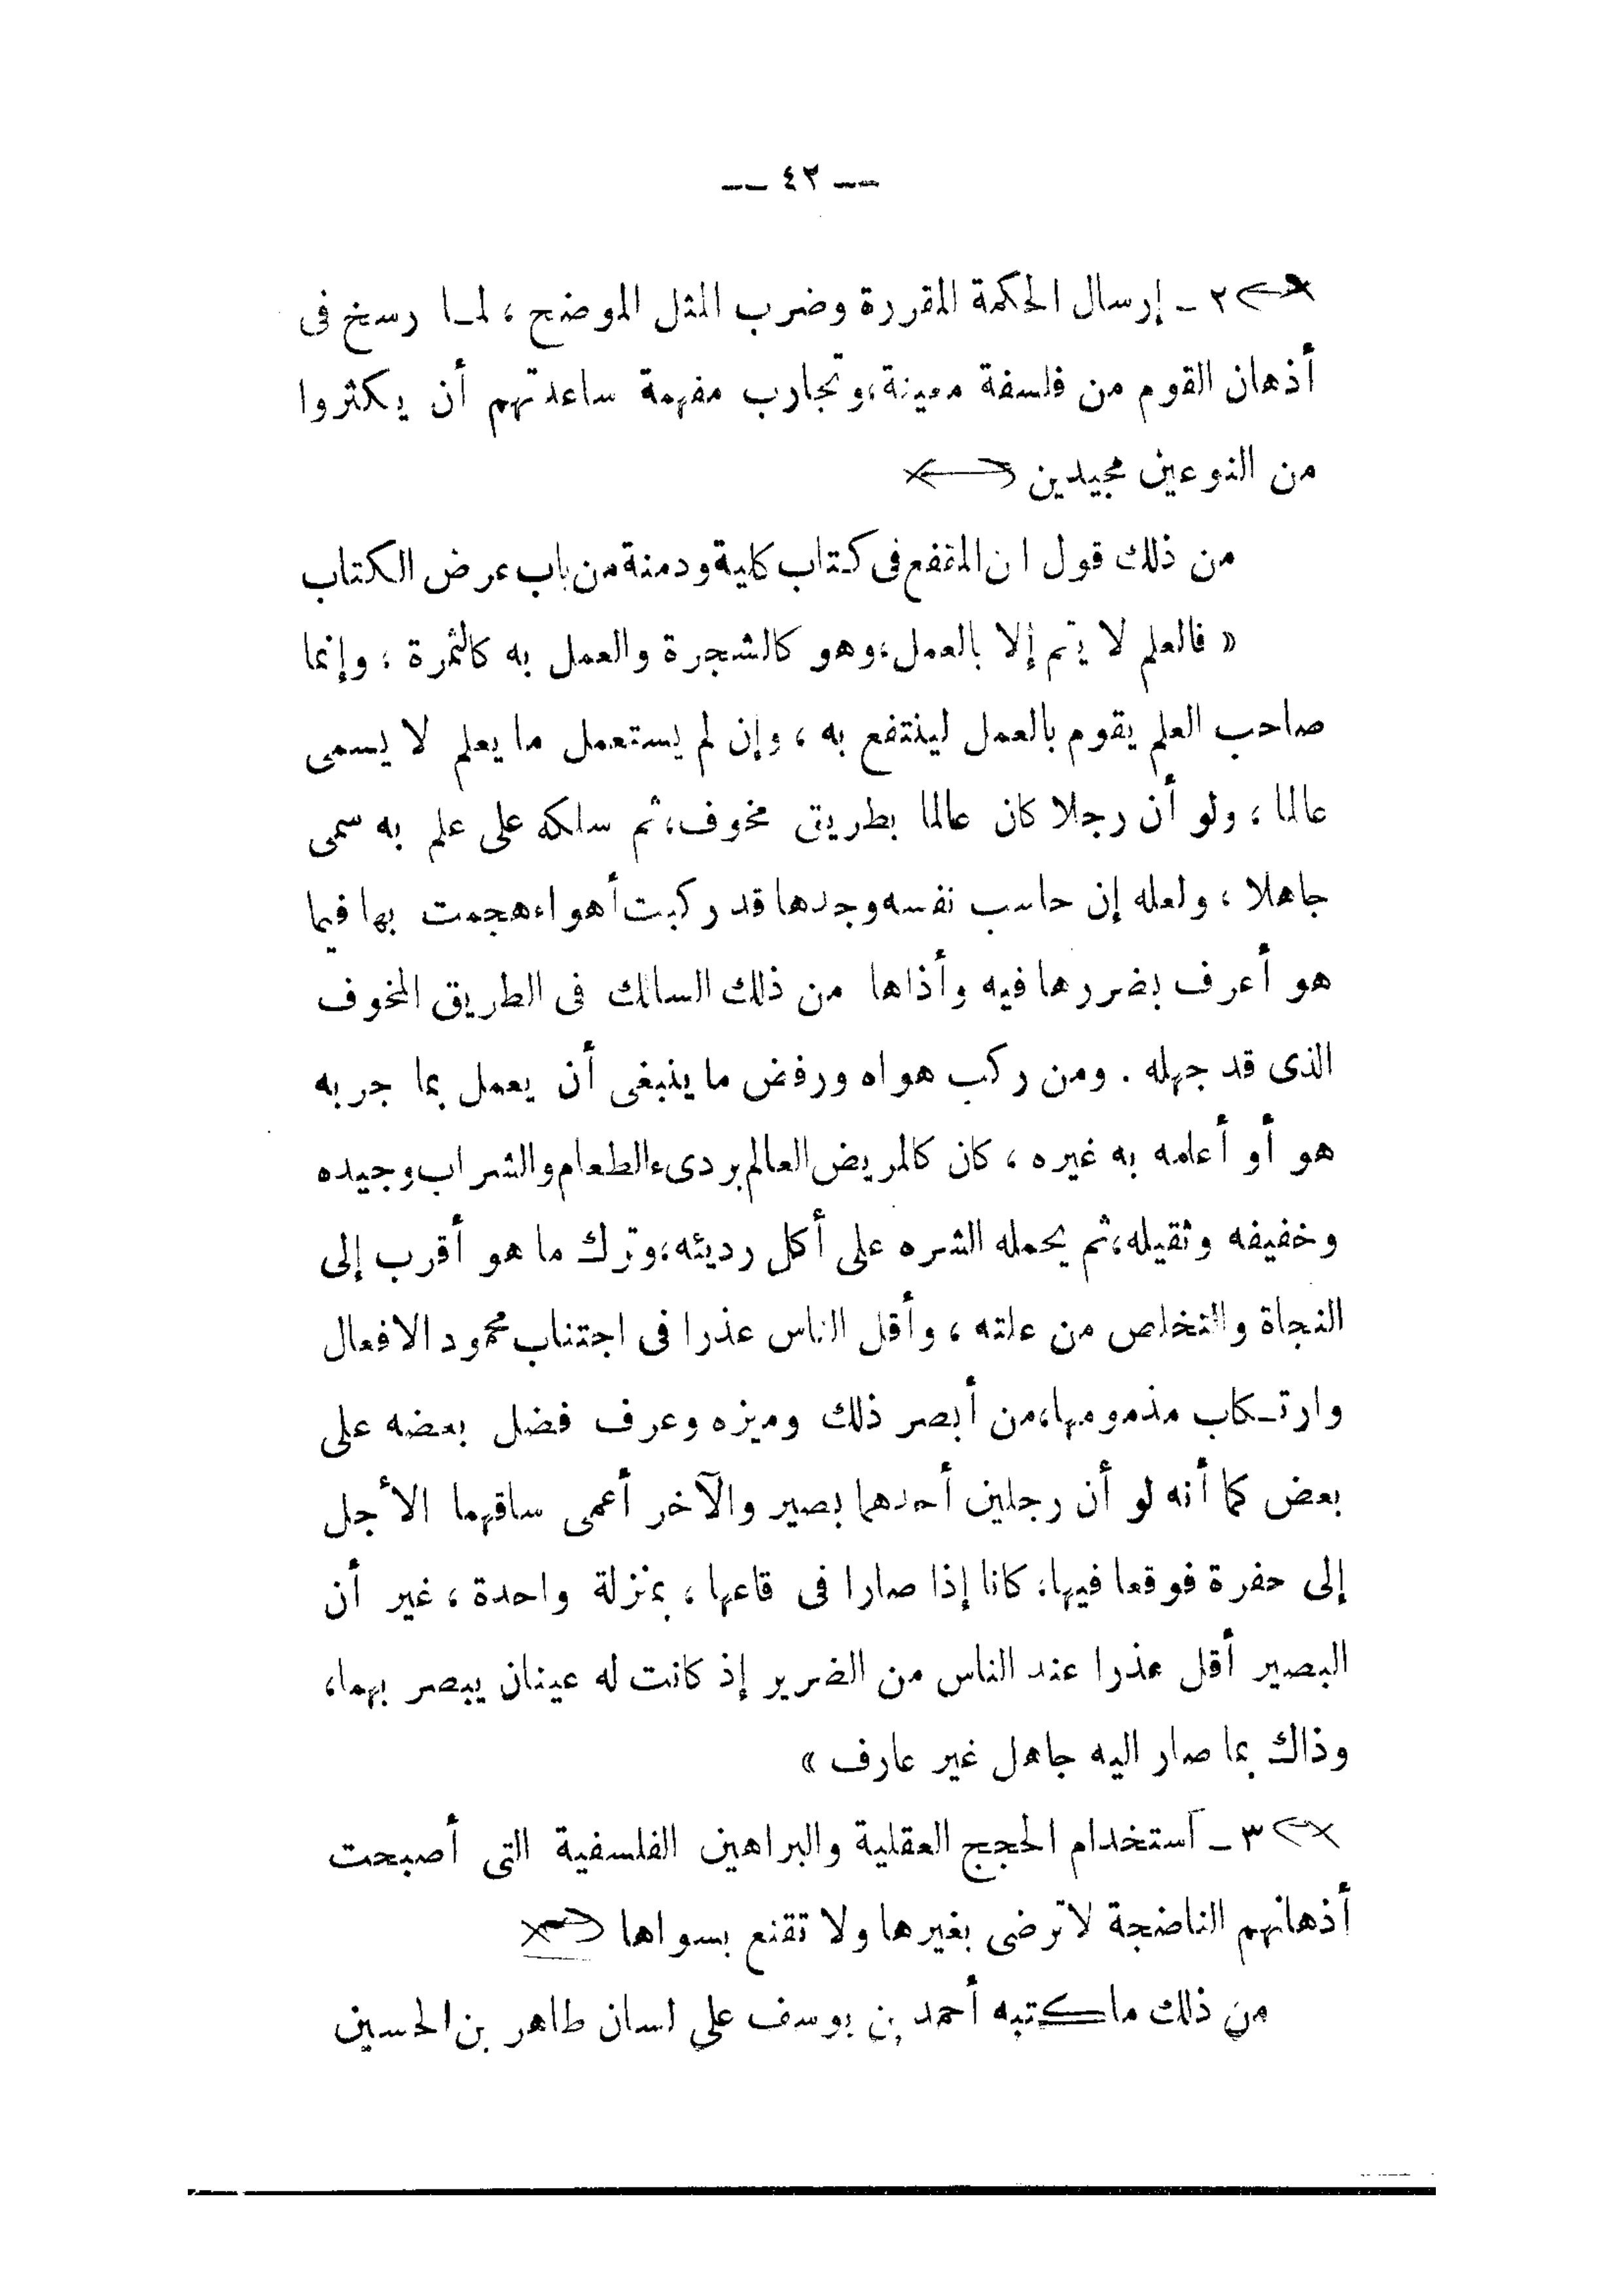 — ٤٢ —
٢ - إرسال الحكمة المقررة وضرب المثل الموضح ، لما رسخ فى
أذهان القوم من فلسفة معينة ، وتجارب مفهمة ساعدتهم أن يكثروا
من النوعين مجيدين
من ذلك قول ابن المقفع فى كتاب كليلة ودمنة من باب عرض الكتاب
« فالعلم لا يتم إلا بالعمل ، وهو كالشجرة والعمل به كالثمرة ، وإنما
صاحب العلم يقوم بالعمل لينتفع به ، وإن لم يستعمل ما يعلم لا يسمى
عالما ، ولو أن رجلا كان عالما بطريق مخوف ، ثم سلكه على علم به سمى
جاهلا ، ولعله إن حاسب نفسه وجدها قد ركبت أهواء هجمت بها فيما
هو أعرف بضررها فيه وأذاها من ذلك السالك فى الطريق المخوف
الذى قد جهله . ومن ركب هواه ورفض ما ينبغى أن يعمل بما جربه
هو أو أعلمه به غيره ، كان كالمريض العالم بردىء الطعام والشراب وجيده
وخفيفه وثقيله ، ثم يحمله الشره على أكل رديئه ، وترك ما هو أقرب إلى
النجاة والتخلص من علته ، وأقل الناس عذرا فى اجتناب محمود الافعال
وارتكاب مذمومها ، من أبصر ذلك وميزه وعرف فضل بعضه على
بعض كما أنه لو أن رجلين أحدهما بصير والآخر أعمى ساقهما الأجل
إلى حفرة فوقعا فيها ، كانا إذا صارا فى قاعها ، بمنزلة واحدة ، غير أن
البصير أقل عذرا عند الناس من الضرير إذ كانت له عينان يبصر بهما ،
وذاك بما صار اليه جاهل غير عارف »
٣ - استخدام الحجج العقلية والبراهين الفلسفية التى أصبحت
أذهانهم الناضجة لا ترضى بغيرها ولا تقنع بسواها
من ذلك ما كتبه أحمد بن يوسف على لسان طاهر بن الحسين